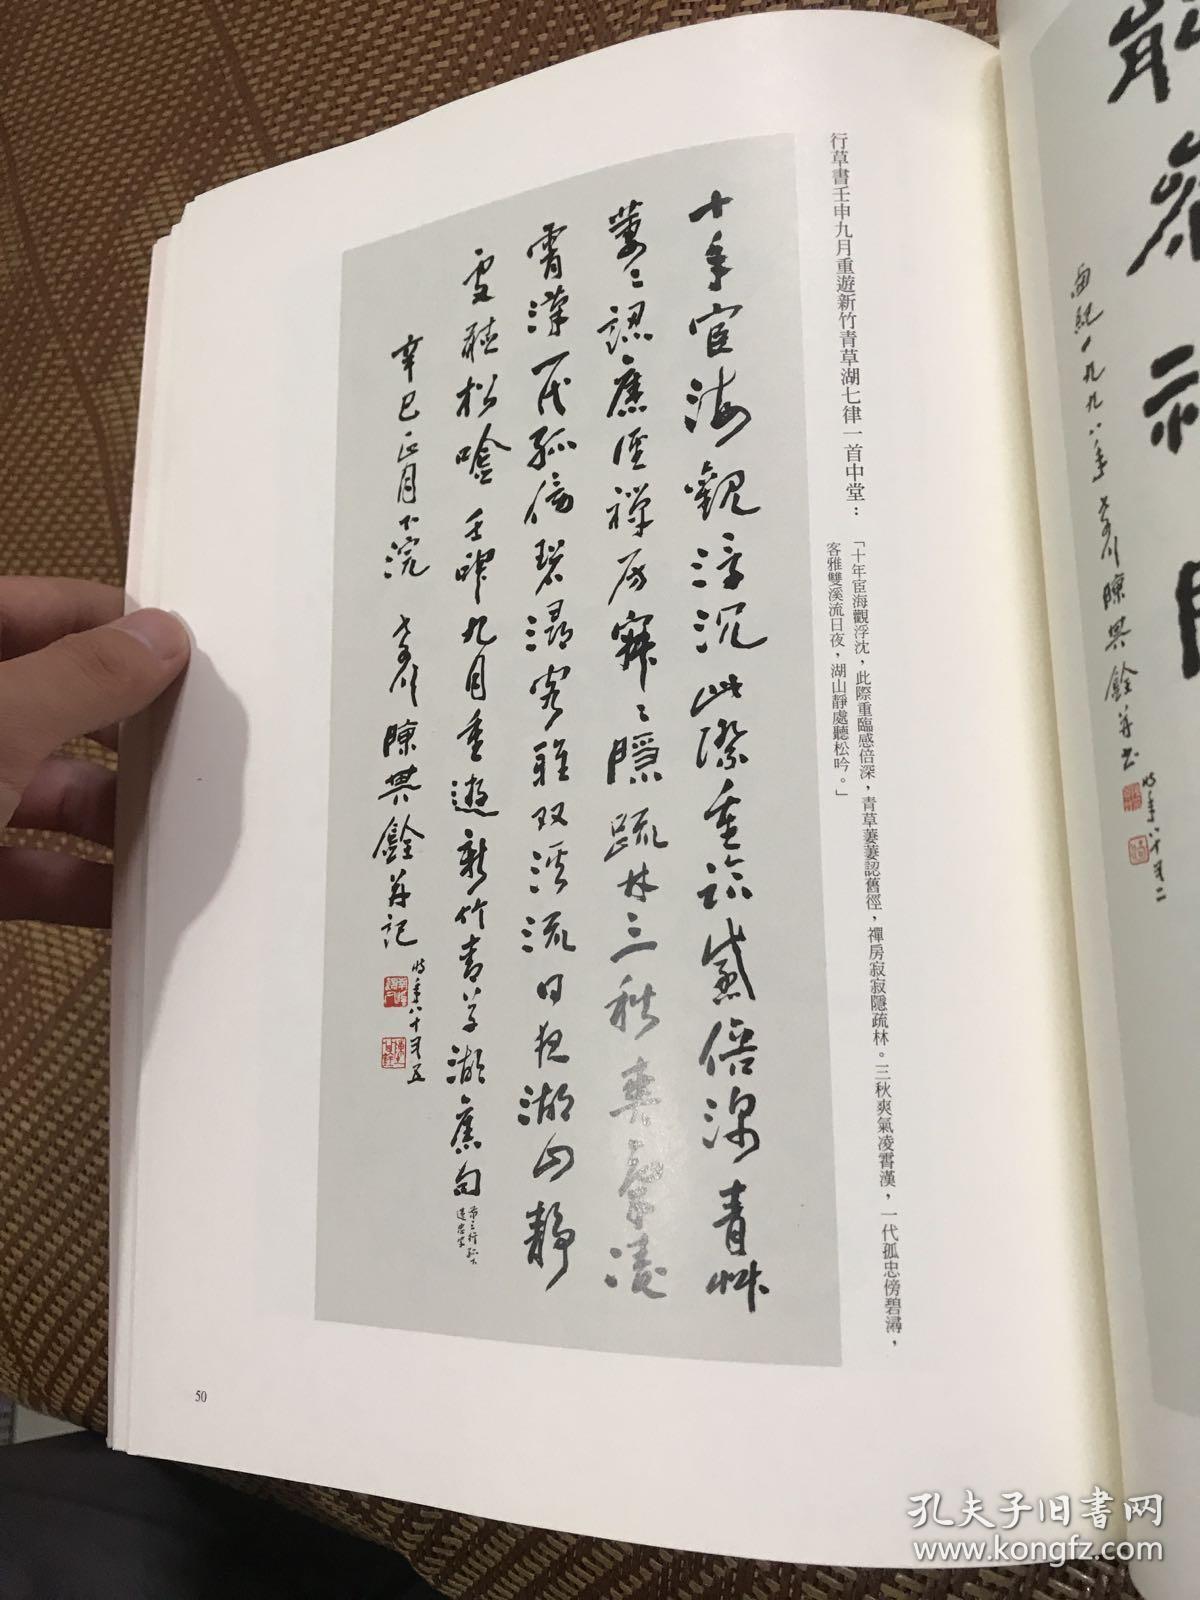 行草書壬申九月重遊新竹青草湖七律一首中堂：
「十年宦海觀浮沈，此際重臨感倍深，青草萋萋認舊徑，禪房寂寂隱疏林。三秋爽氣凌霄漢，一代孤忠傍碧潯，
客雅雙溪流日夜，湖山靜處聽松吟。」
十年宦海觀浮沉此際重臨感倍深青草
萋〻認舊徑禪房寂〻隱疏林三秋爽氣凌
霄漢一代孤傍碧潯客雅双溪流日夜湖山靜
處聽松唫 壬申九月重遊新竹青草湖舊句
第三行孤下
遺忠字
辛巳正月下浣 陳其銓并記
時年八十有五
西紀一九九八年 陳其銓并書
時年八十有二
50
孔夫子旧书网
www.kongfz.com